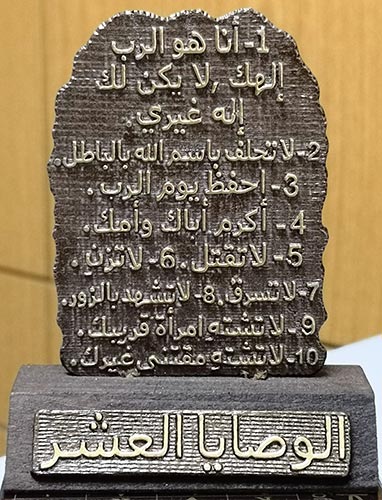 1- أنا هو الرب
إلهك ,لا يكن لك
إله غيري.
2- لا تحلف باسم الله بالباطل.
3- احفظ يوم الرب.
4- أكرم أباك وأمك.
5- لا تقتل. 6- لا تزن.
7- لا تسرق. 8- لا تشهد بالزور.
9- لا تشته امرأة قريبك.
10- لا تشته مقتنى غيرك.
الوصايا العشر